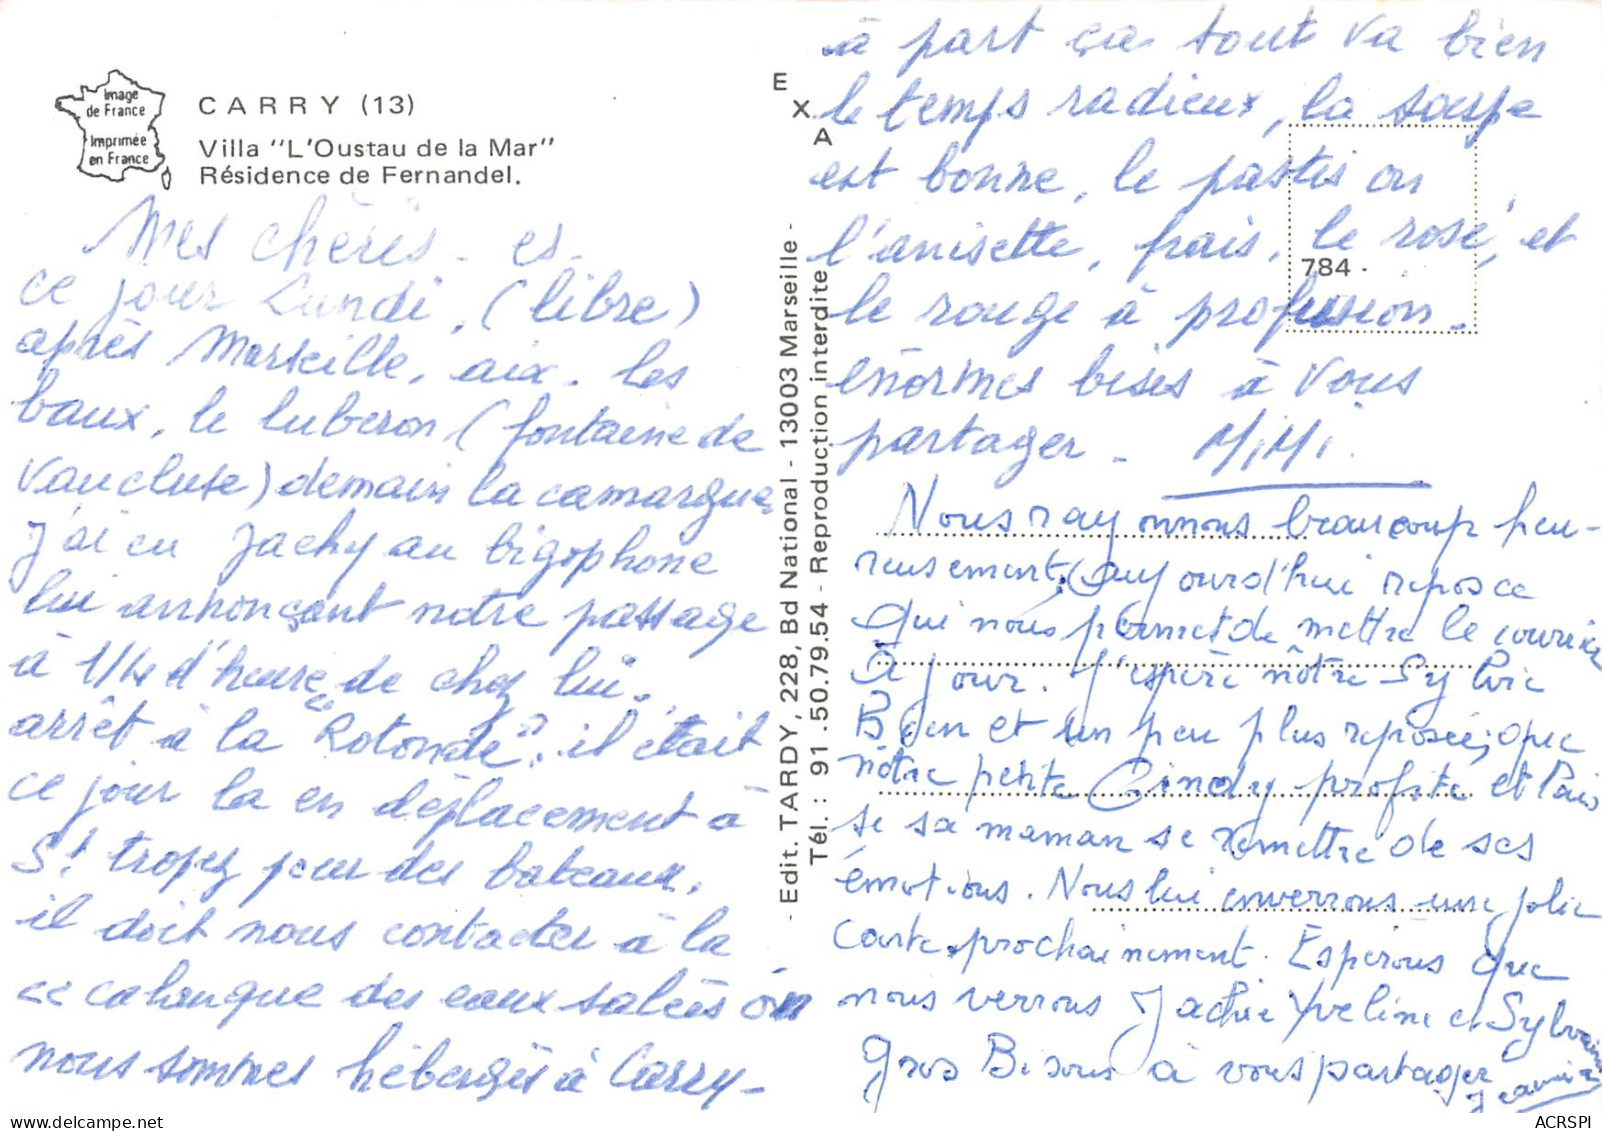 Image
de France
Imprimée
en France
CARRY (13)
Villa "L'Oustau de la Mar"
Résidence de Fernandel.
Mes chéris - es -
ce jour Lundi, (libre)
après Marseille, aix. les
baux, le luberon (fontaine de
Vaucluse) demain la camargue,
J'ai eu Jachy au bigophone
lui annonçant notre passage
à 1/4 d'heure de chez lui.
arrêt à la "Rotonde". il était
ce jour la en déplacement à
St tropez pour des bateaux.
il doit nous contacter à la
<< calanque des eaux salées où
nous sommes hébergés à Carry -
E
X
A
- Edit. TARDY, 228, Bd National - 13003 Marseille -
Tél. : 91.50.79.54 - Reproduction interdite
784 -
à part ça tout va bien
le temps radieux, la soupe
est bonne, le pastis ou
l'anisette, frais, le rosé, et
le rouge à profusion.
énormes bises à Vous
partager - MiMi.
Nous rayonnons beaucoup heu-
reusement, (Aujourd'hui repos ce
qui nous permet de mettre le courrier
à jour. J'espère nôtre Sylvie
Bien et un peu plus reposée, que
nôtre petite Cindy profite et laisse
se sa maman se remettre de ses
émotions. Nous lui enverrons une jolie
carte prochainement. Espérons que
nous verrons Jachie Yveline et Sylvain
gros Bisous à vous partager
Jeannine
ACRSPI